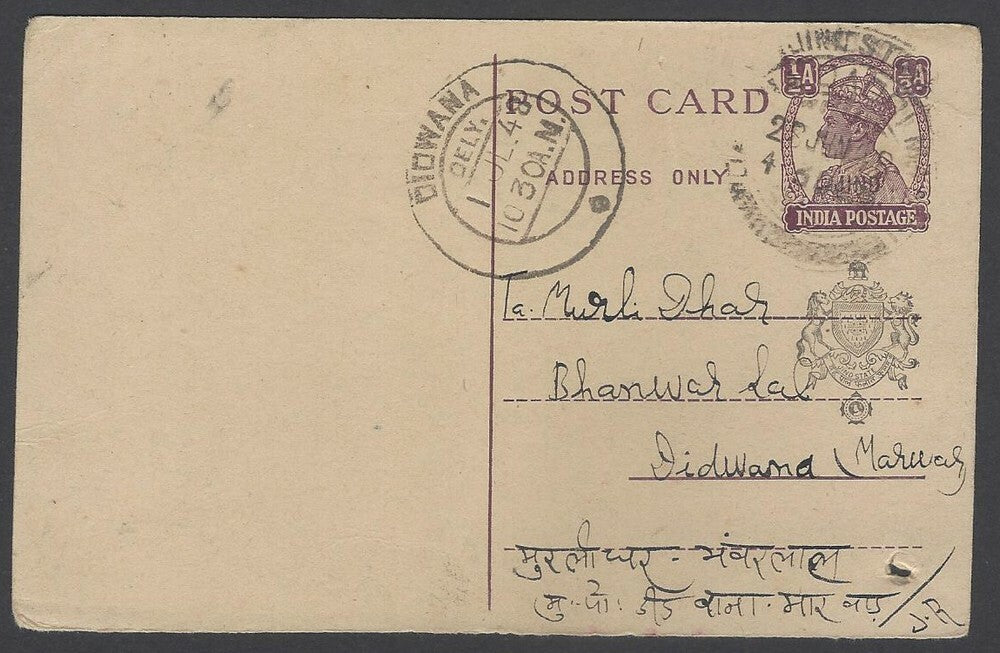 POST CARD
ADDRESS ONLY
½A ½A
JIND
INDIA POSTAGE
DIDWANA
DELY.
1 JL. 48
10 30 A.M.
JIND STATE
To. Murli Dhar
Bhanwar Lal
Didwana (Marwar)
मुरलीधर - भंवरलाल
मु. पो: डीडवाना - मारवाड़
J.R